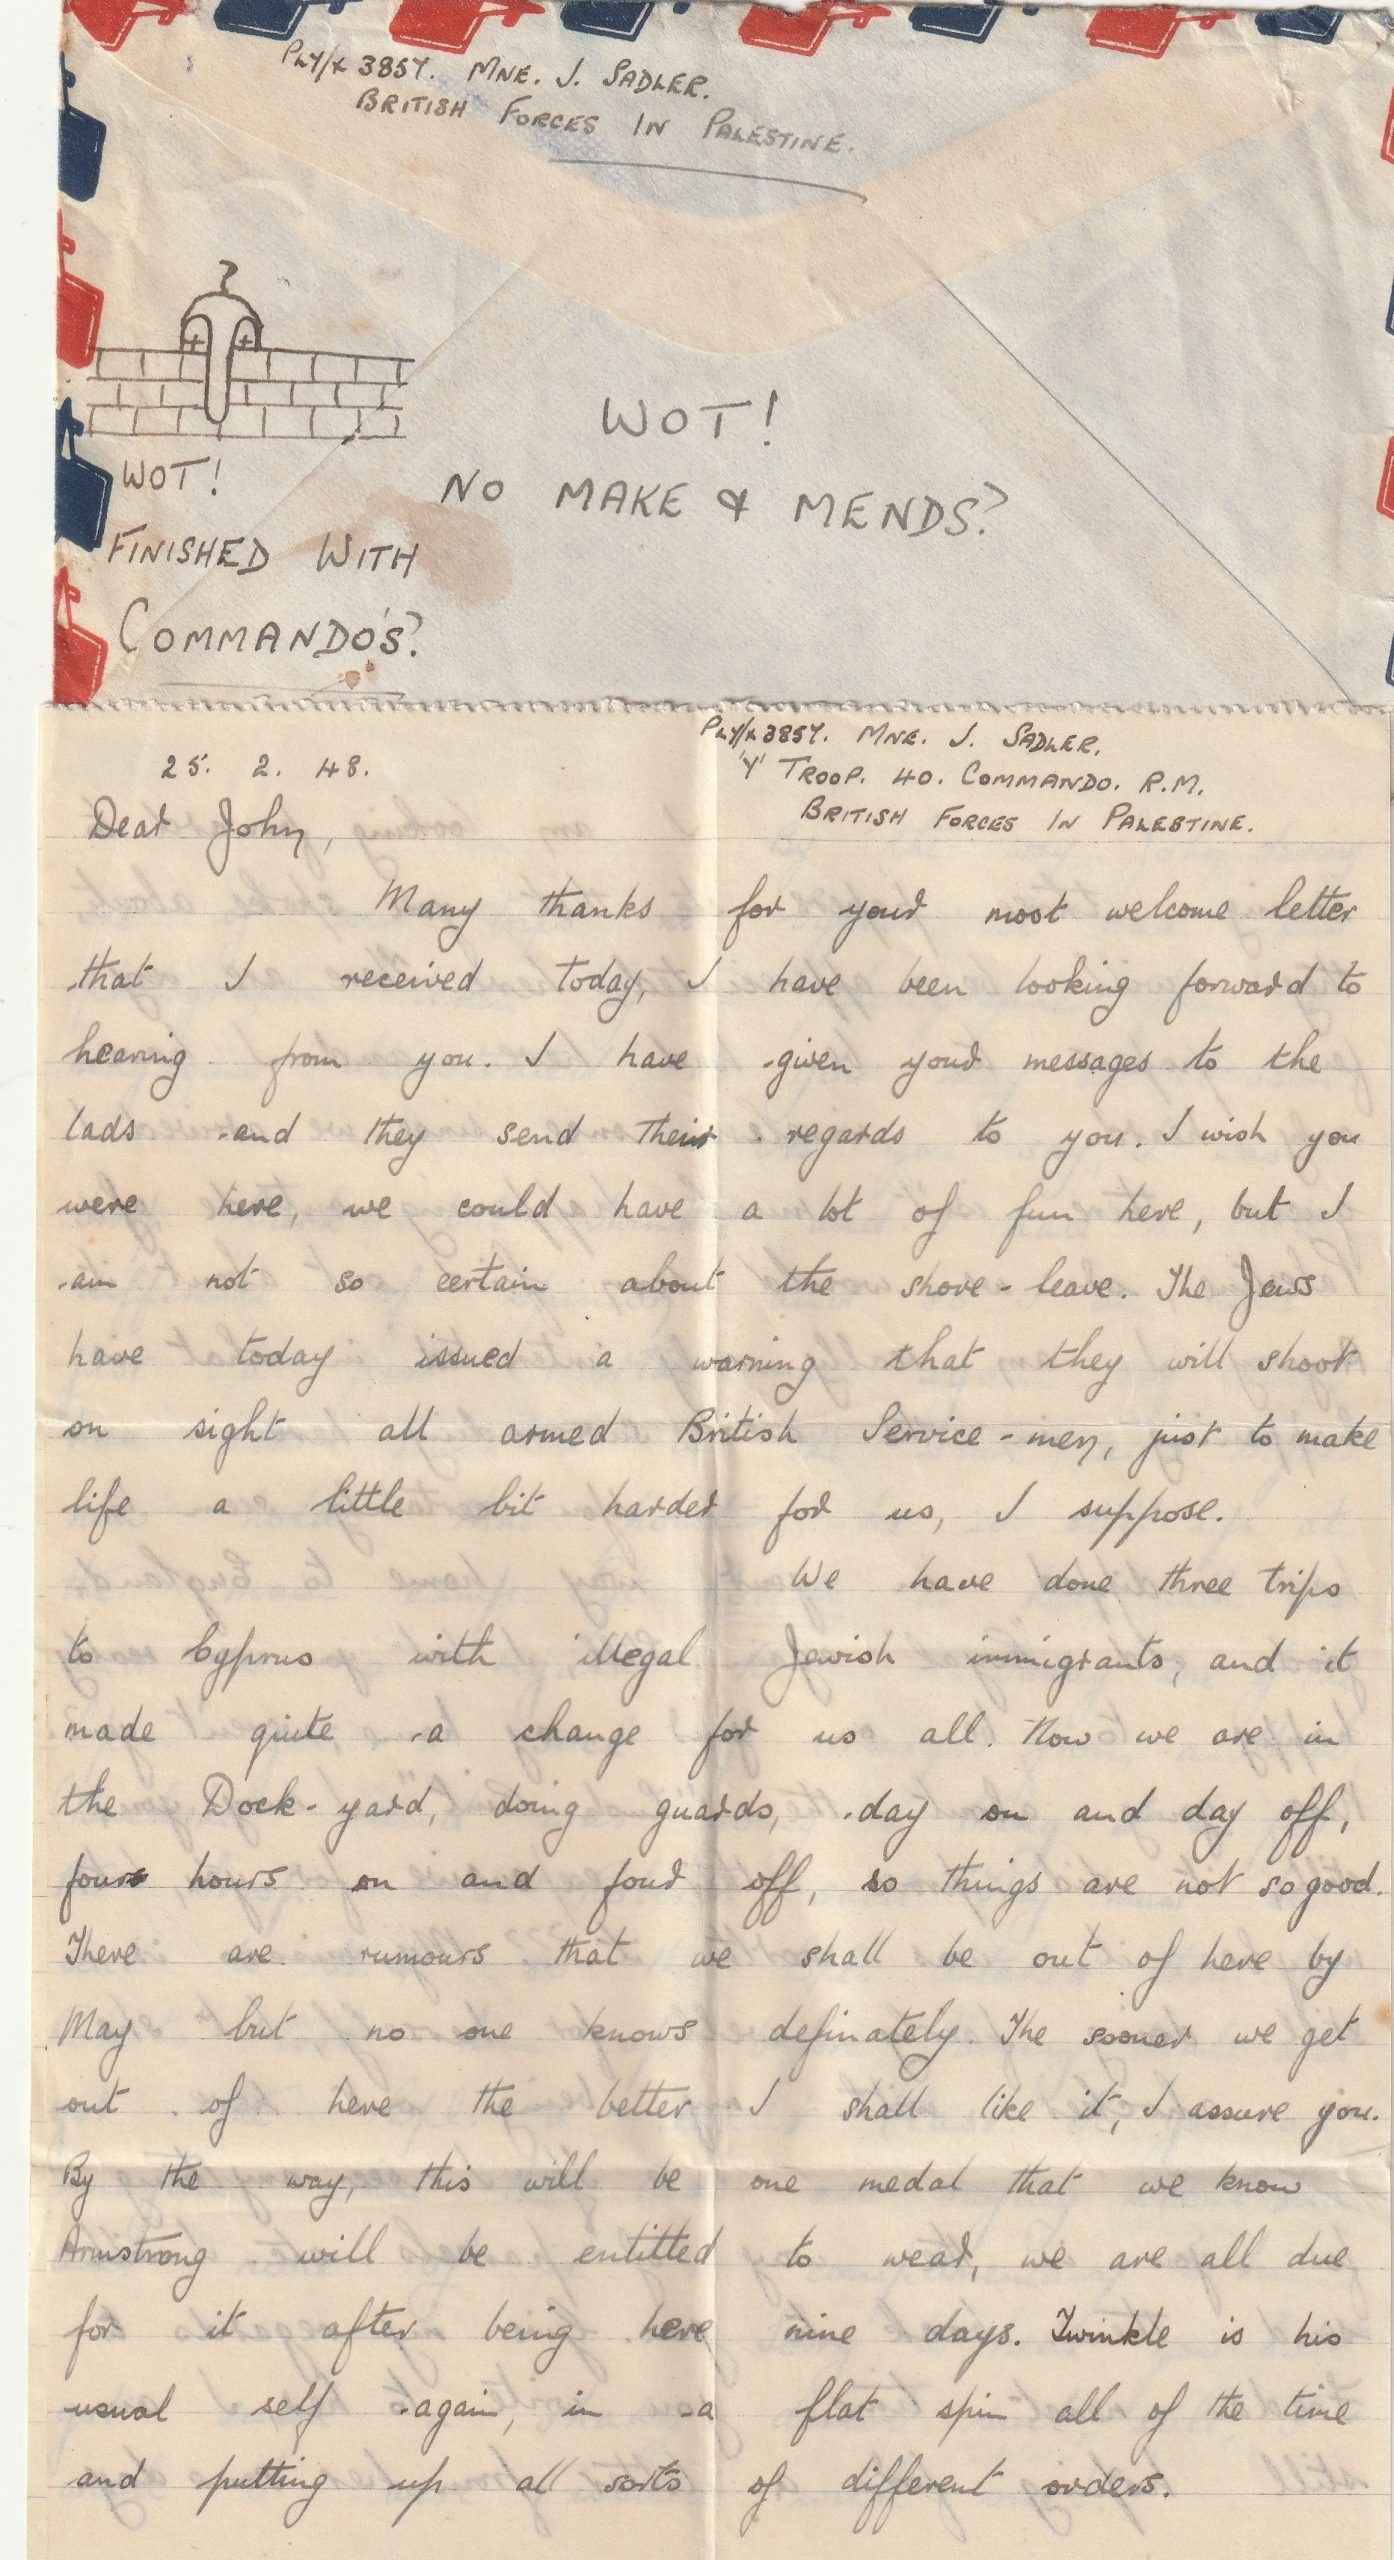 PLY/X 3857. MNE. J. SADLER.
BRITISH FORCES IN PALESTINE.
WOT!
FINISHED WITH
COMMANDO'S?
WOT!
NO MAKE & MENDS?
25. 2. 48.
PLY/X 3857. MNE. J. SADLER.
'Y' TROOP. 40. COMMANDO. R.M.
BRITISH FORCES IN PALESTINE.
Dear John,
Many thanks for your most welcome letter
that I received today, I have been looking forward to
hearing from you. I have given your messages to the
lads and they send their regards to you. I wish you
were here, we could have a lot of fun here, but I
am not so certain about the shore-leave. The Jews
have today issued a warning that they will shoot
on sight all armed British Service-men, just to make
life a little bit harder for us, I suppose.
We have done three trips
to Cyprus with illegal Jewish immigrants, and it
made quite a change for us all. Now we are in
the Dock-yard, doing guards, day on and day off,
four hours on and four off, so things are not so good.
There are rumours that we shall be out of here by
May but no one knows definately. The sooner we get
out of here the better I shall like it, I assure you.
By the way, this will be one medal that we know
Armstrong will be entitled to wear, we are all due
for it after being here nine days. Twinkle is his
usual self again, in a flat spin all of the time
and putting up all sorts of different orders.